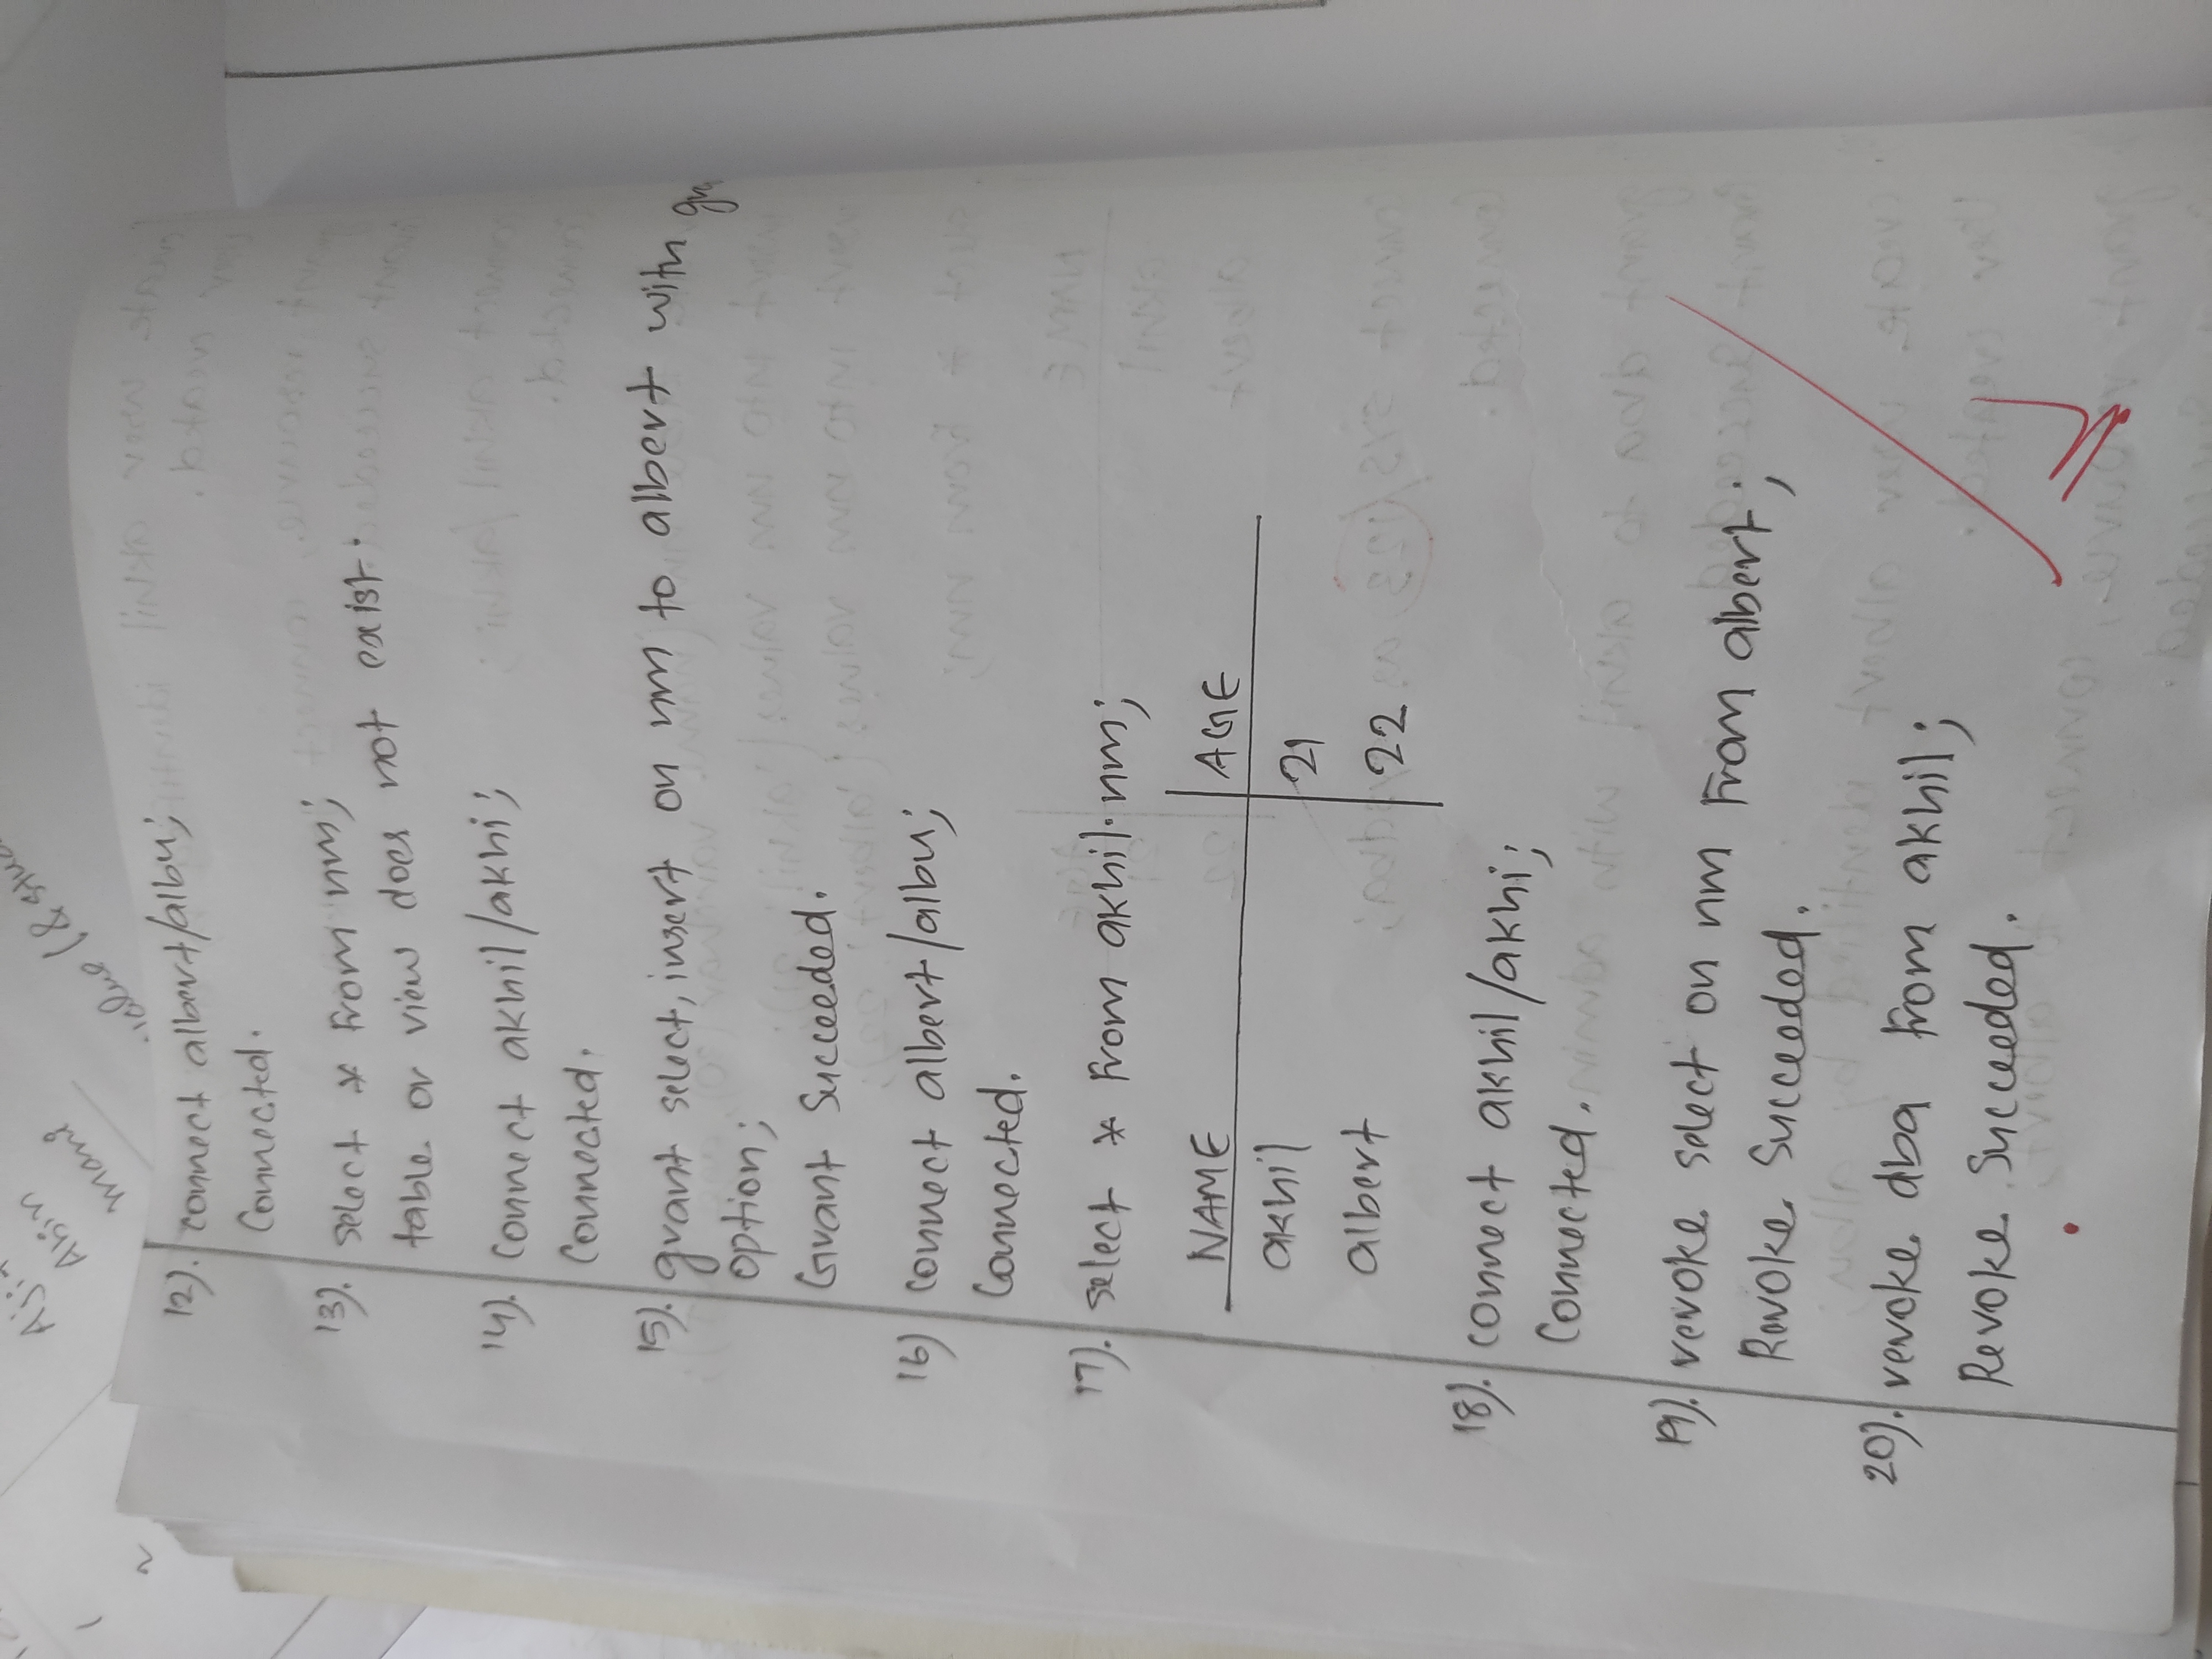 12). connect albert/albu;
Connected.
13). select * From nm;
table or view does not exist.
14). connect akhil/akhi;
Connected.
15). grant select, insert on nm to albert with
option;
Grant Succeeded.
16) connect albert/albu;
Connected.
17). select * From akhil.nm;
NAME AGE
akhil 21
albert 22
18). connect akhil/akhi;
Connected.
19). revoke select on nm From albert;
Revoke Succeeded.
20). revoke dba From akhil;
Revoke Succeeded.
Abin